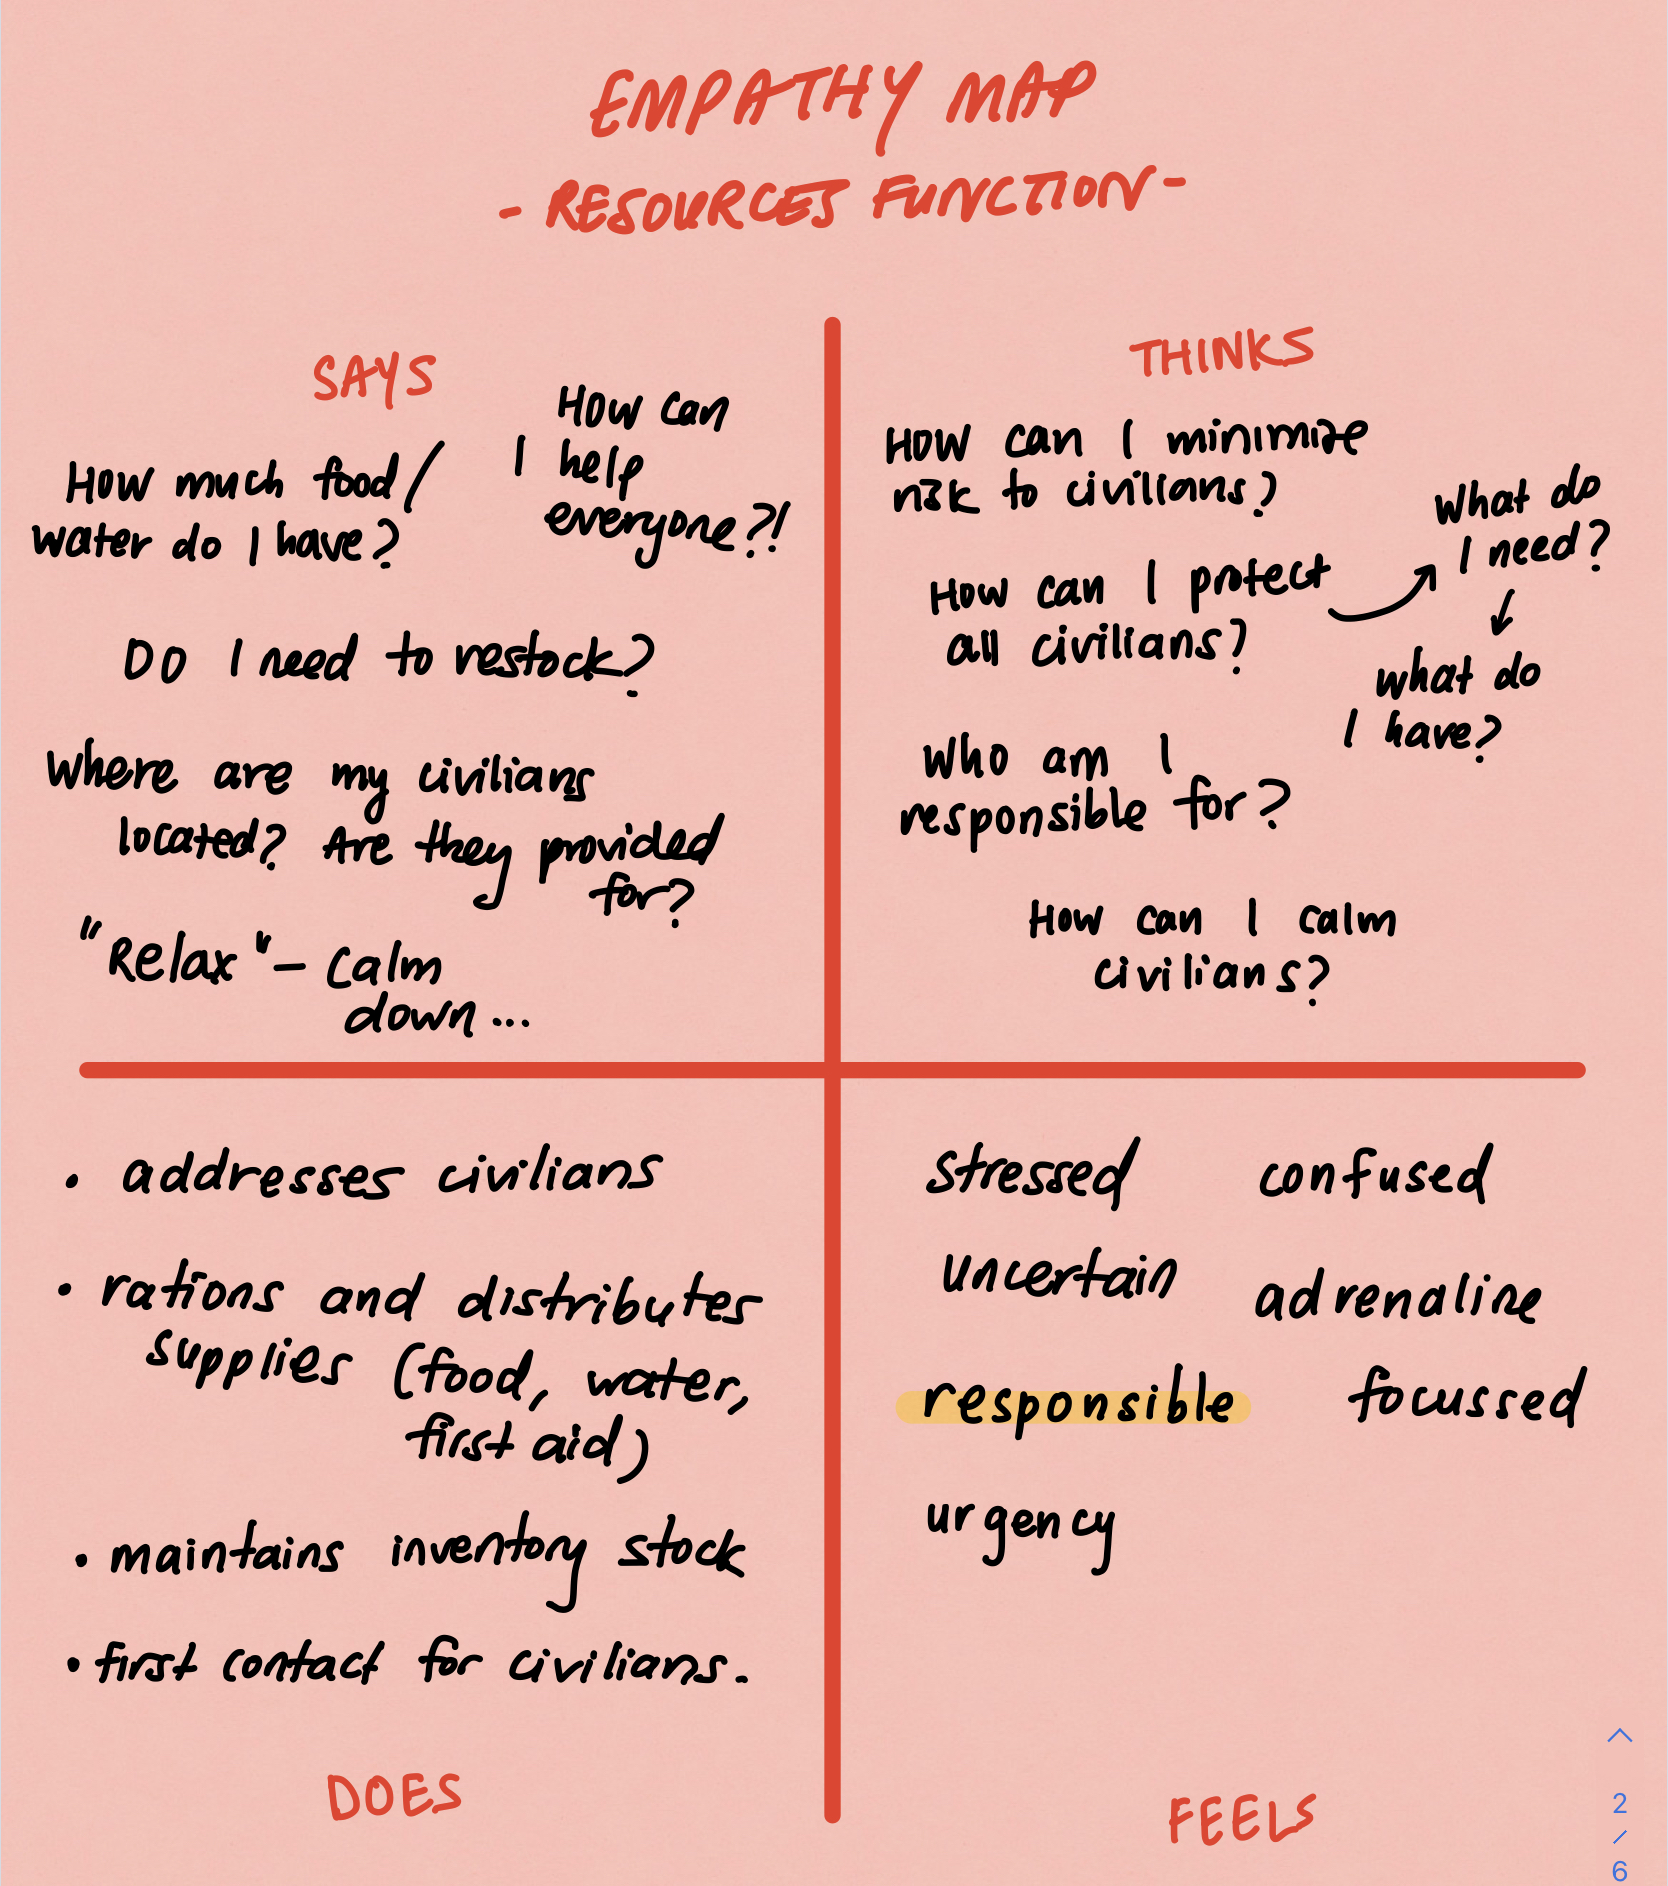 EMPATHY MAP
- RESOURCES FUNCTION -
SAYS
How much food/
water do I have?
How can
I help
everyone?!
Do I need to restock?
Where are my civilians
located? Are they provided
for?
"Relax" - Calm
down...
THINKS
How can I minimize
risk to civilians?
How can I protect
all civilians?
What do
I need?
what do
I have?
Who am I
responsible for?
How can I calm
civilians?
• addresses civilians
• rations and distributes
supplies (food, water,
first aid)
• maintains inventory stock
• first contact for civilians.
DOES
stressed
confused
uncertain
adrenaline
responsible
focussed
urgency
FEELS
2
/
6